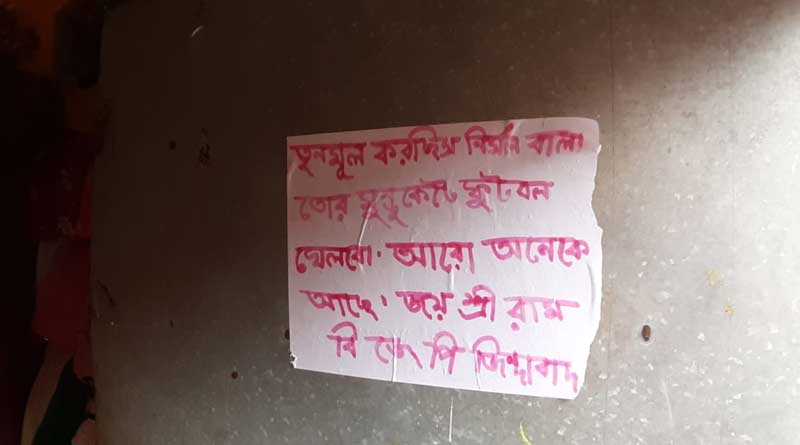 তৃনমূল করছিস নির্মল বালা
তোর মুন্ডু কেটে ফুটবল
খেলবো. আরো অনেকে
আছে. জয় শ্রী রাম
বি জে পি জিন্দাবাদ